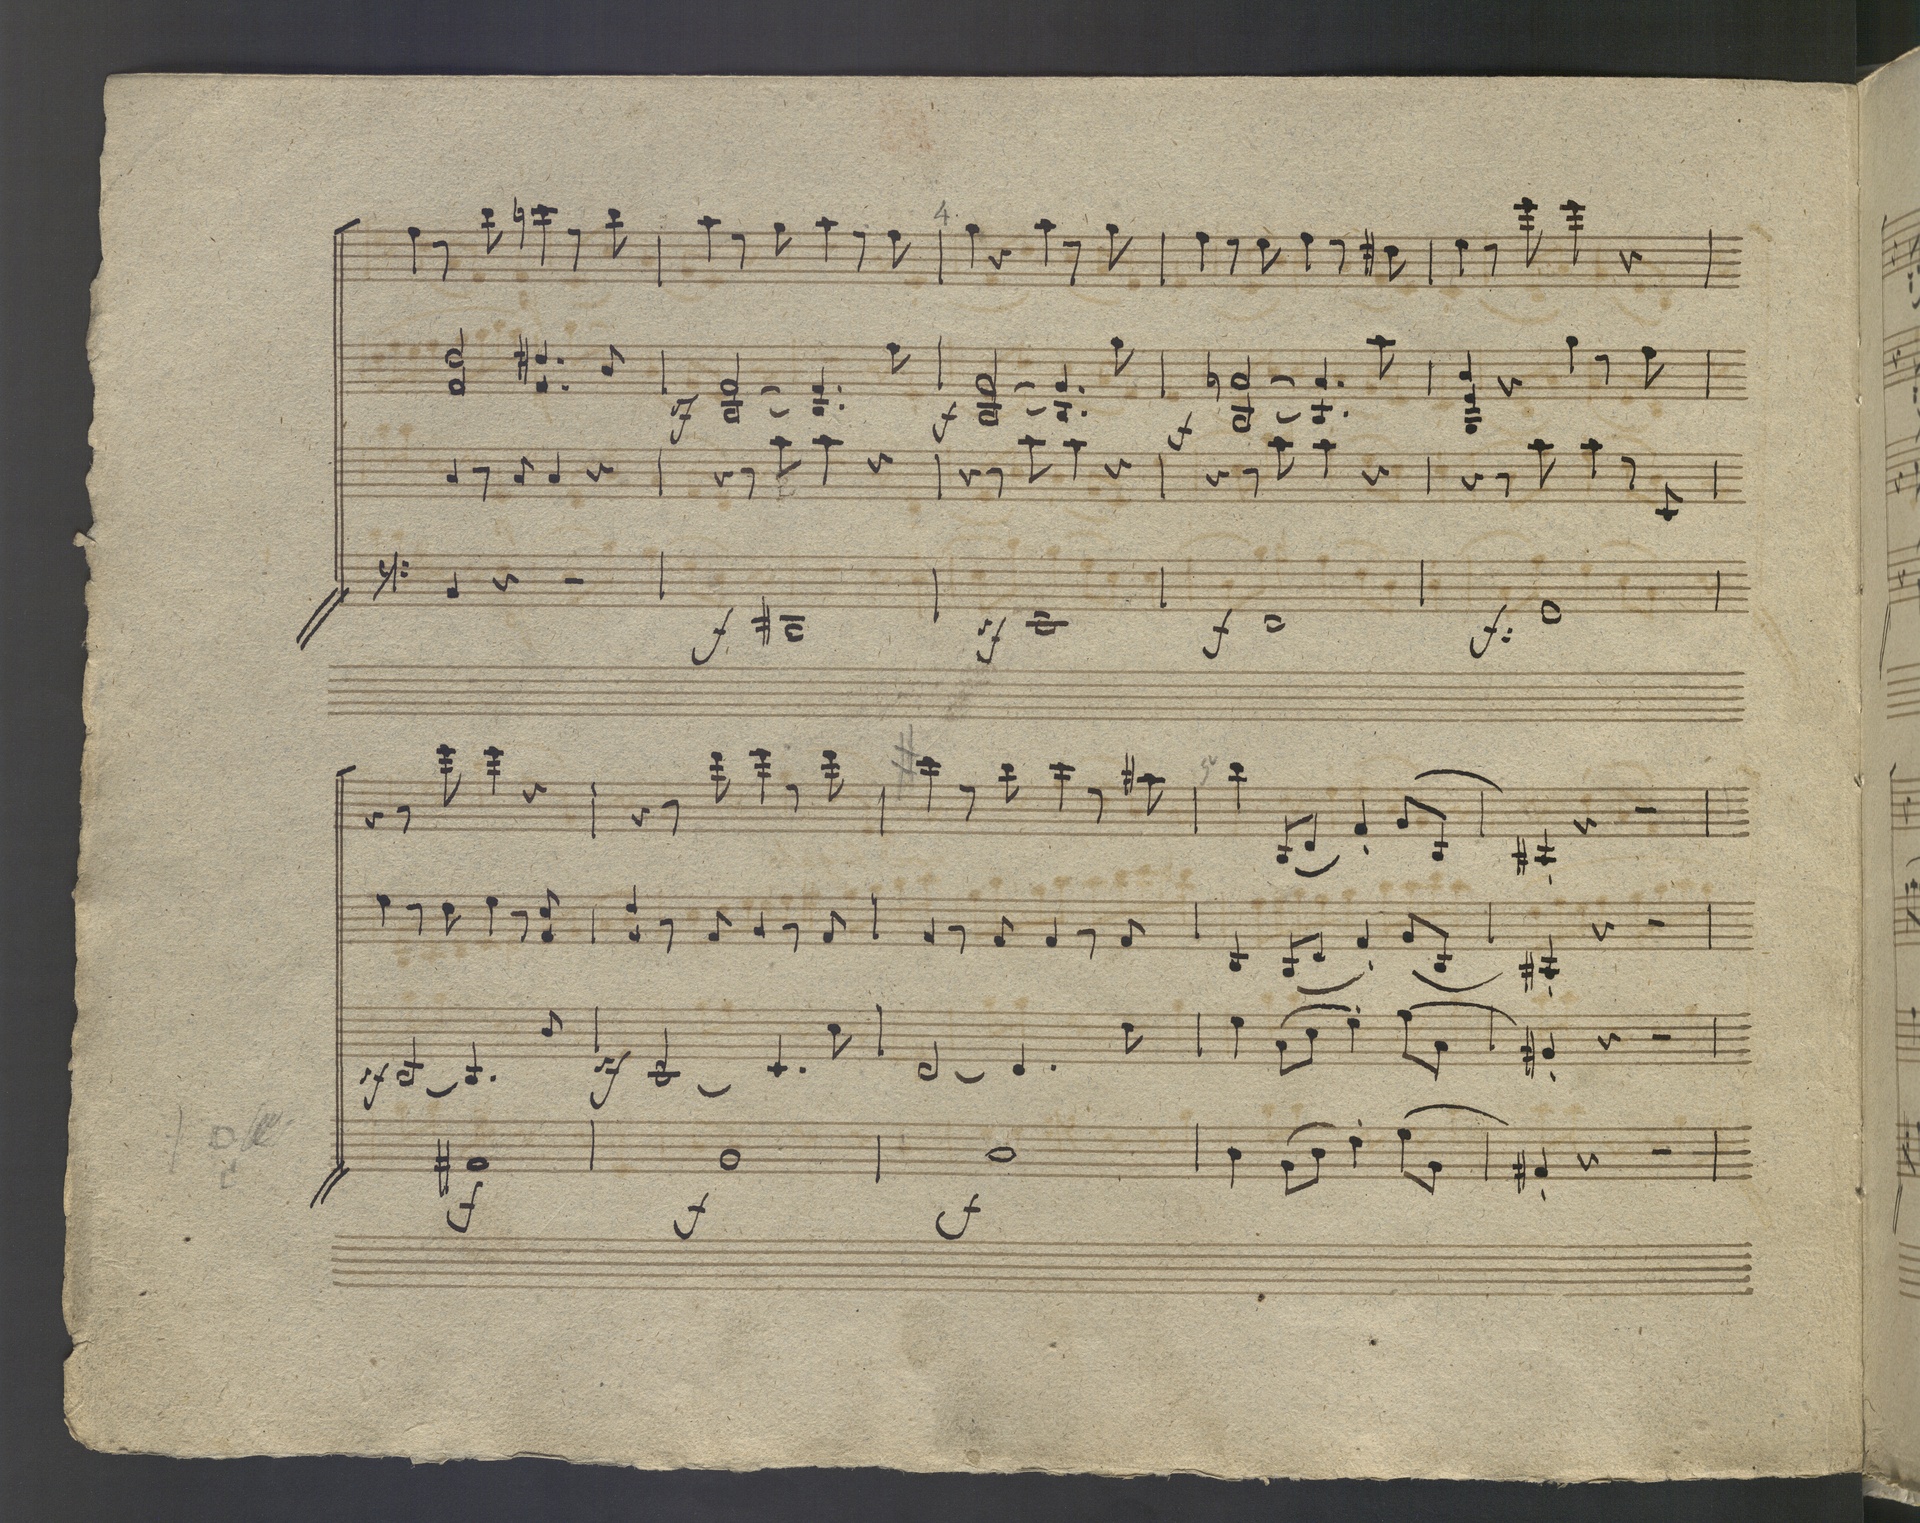 4.
sf f f
f sf f f:
sf sf
f f f